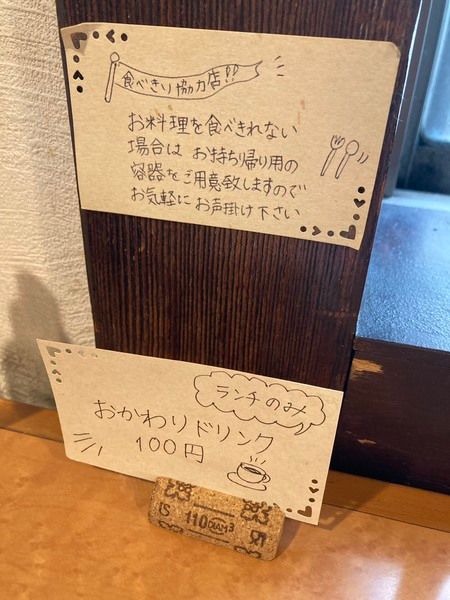 食べきり協力店!!
お料理を食べきれない
場合は お持ち帰り用の
容器をご用意致しますので
お気軽に お声掛け下さい
ランチのみ
おかわりドリンク
100円
110 DIAM3